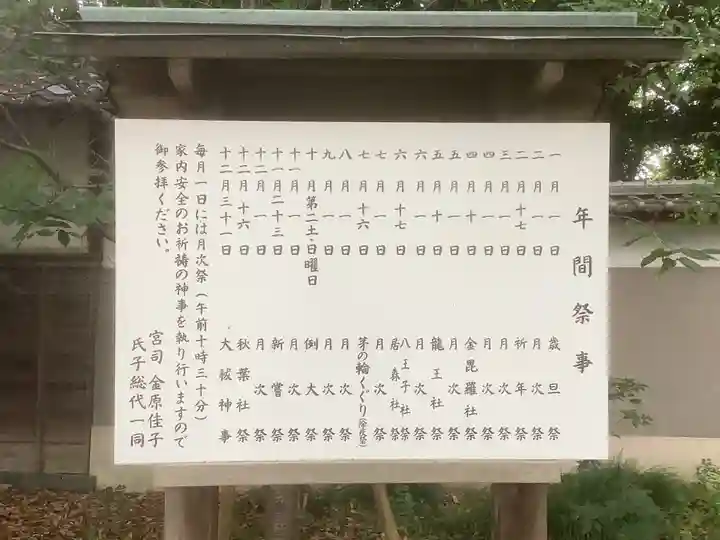 年間祭事
一月一日 歳旦祭
二月一日 月次祭
二月十七日 祈年祭
三月一日 月次祭
四月一日 月次祭
四月十日 金毘羅社祭
五月一日 月次祭
五月十日 龍王社祭
六月一日 月次祭
六月十七日 八王子社祭
居森社祭
七月一日 月次祭
七月十六日 茅の輪くぐり(除疫祭)
八月一日 月次祭
九月一日 月次祭
十月第二土・日曜日 例大祭
十一月一日 月次祭
十一月二十三日 新嘗祭
十二月一日 月次祭
十二月十六日 秋葉社祭
十二月三十一日 大祓神事
毎月一日には月次祭(午前十時三十分)
家内安全のお祈祷の神事を執り行いますので
御参拝ください。
宮司 金原佳子
氏子総代一同